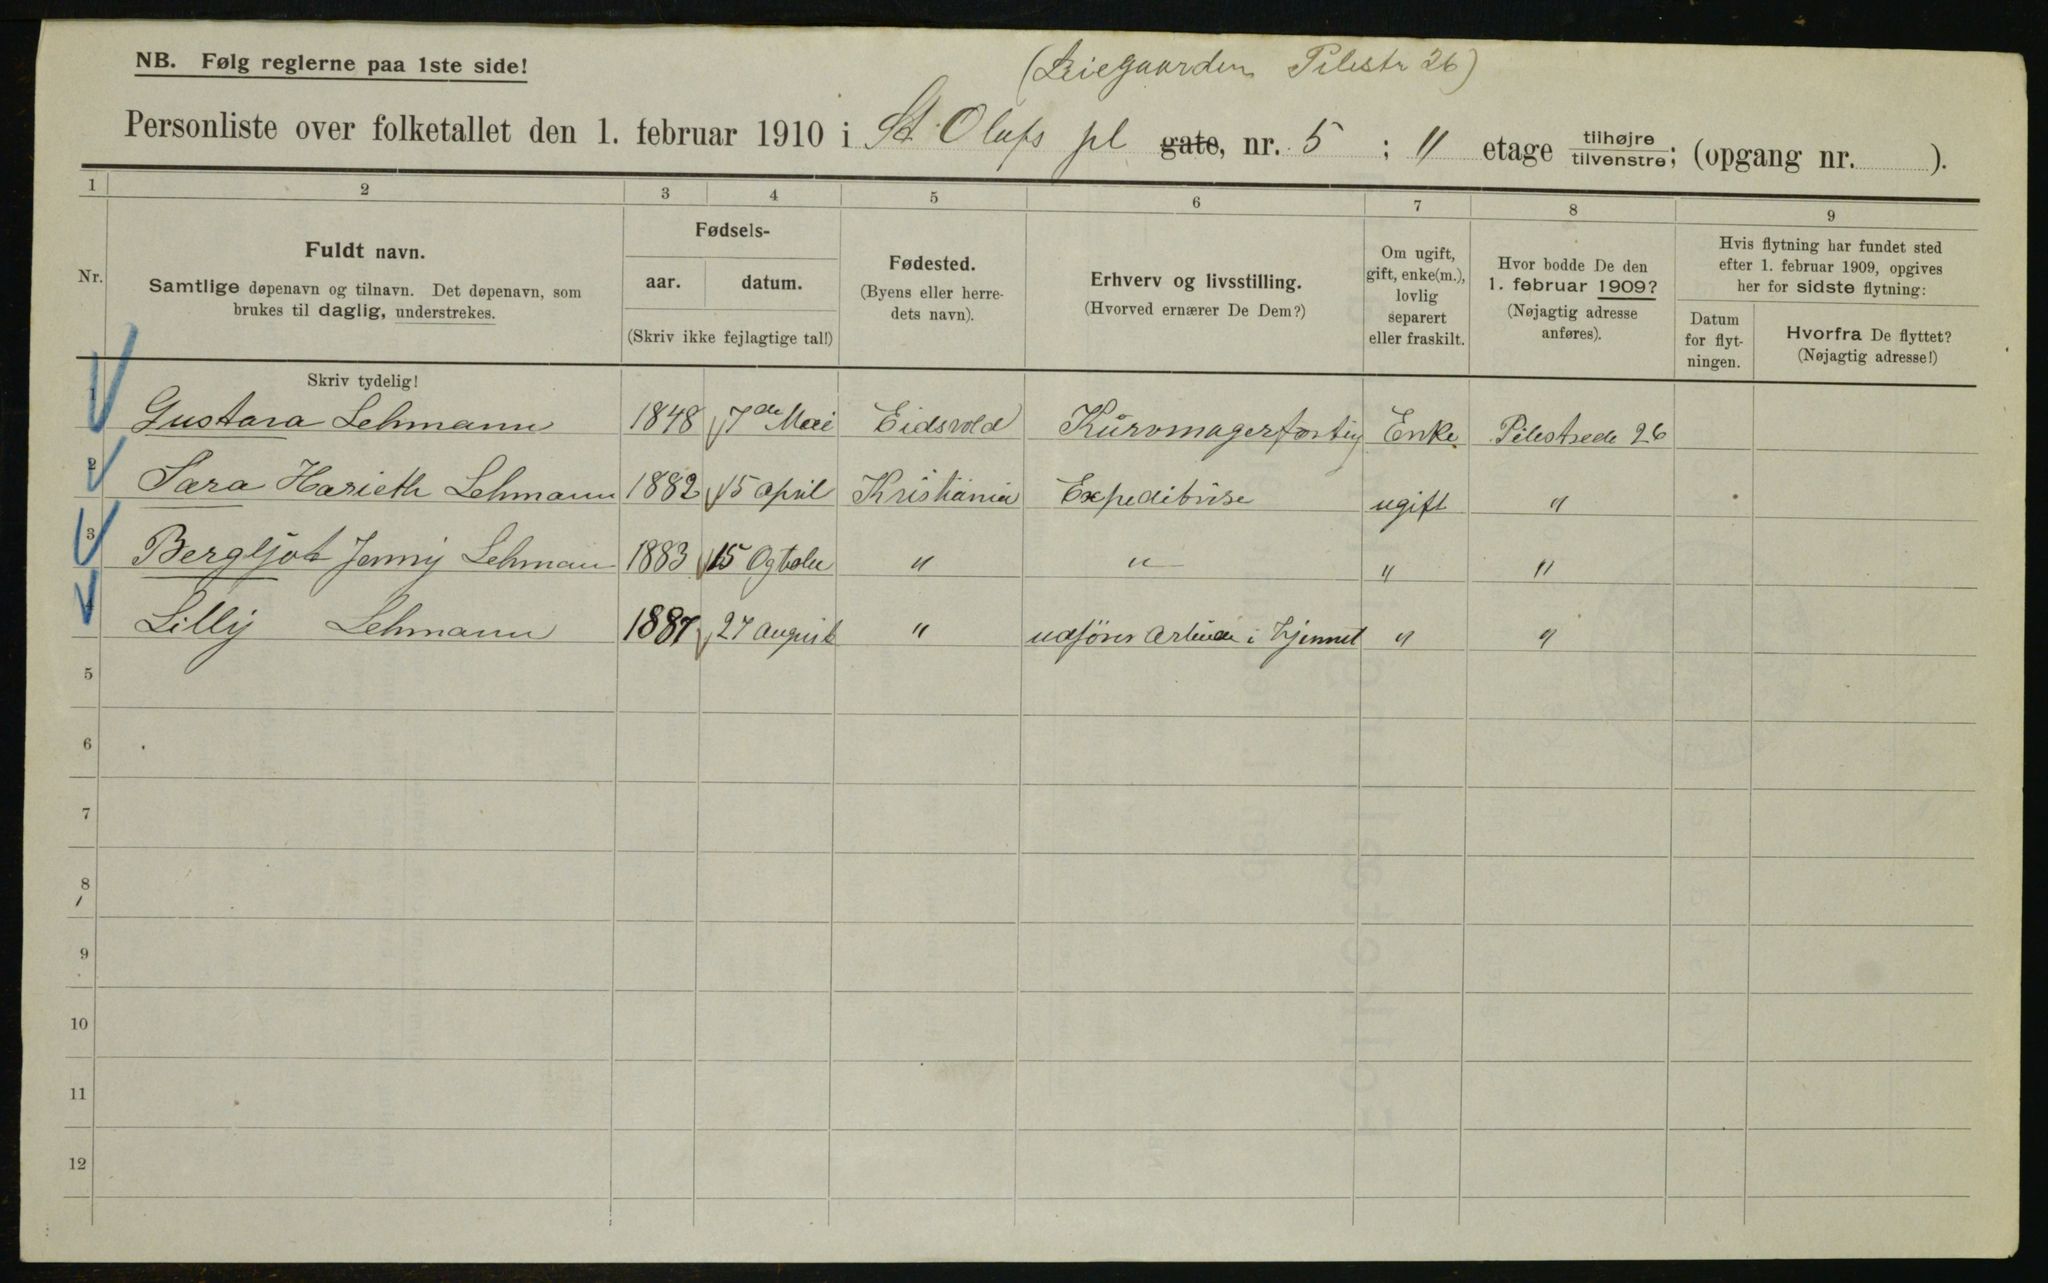 NB. Følg reglerne paa 1ste side!
(Leiegaarden Pilestr 26)
Personliste over folketallet den 1. februar 1910 i St. Olafs pl gate, nr. 5 ; 11 etage tilhøjre tilvenstre; (opgang nr. ).
1 2 3 4 5 6 7 8 9
Nr.
Fuldt navn.
Samtlige døpenavn og tilnavn. Det døpenavn, som
brukes til daglig, understrekes.
Fødsels-
aar. datum.
(Skriv ikke fejlagtige tal!)
Fødested.
(Byens eller herre-
dets navn).
Erhverv og livsstilling.
(Hvorved ernærer De Dem?)
Om ugift,
gift, enke(m.),
lovlig
separert
eller fraskilt.
Hvor bodde De den
1. februar 1909?
(Nøjagtig adresse
anføres).
Hvis flytning har fundet sted
efter 1. februar 1909, opgives
her for sidste flytning:
Datum
for flyt-
ningen.
Hvorfra De flyttet?
(Nøjagtig adresse!)
Skriv tydelig!
1 Gustava Lehmann 1848 7de Mai Eidsvold Kurvmagerforretning Enke Pilestrede 26
2 Sara Harieth Lehmann 1882 15 april Kristiania Expeditrise ugift "
3 Bergljot Jenny Lehman 1883 15 Ogtober " " " "
4 Lilly Lehmann 1887 27 august " udfører Arbeide i hjemmet " "
5
6
7
8
9
10
11
12